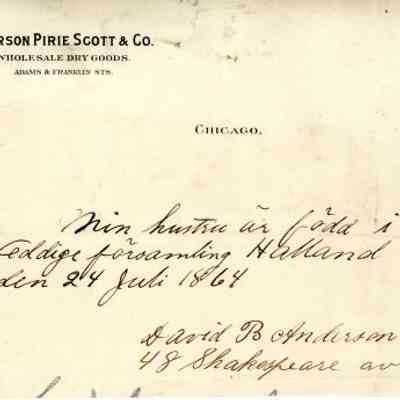 RSON PIRIE SCOTT & CO.
WHOLESALE DRY GOODS.
ADAMS & FRANKLIN STS.
CHICAGO.
Min hustru är född i
Eddige församling Halland
den 24 Juli 1864
David B Anderson
48 Shakespeare av